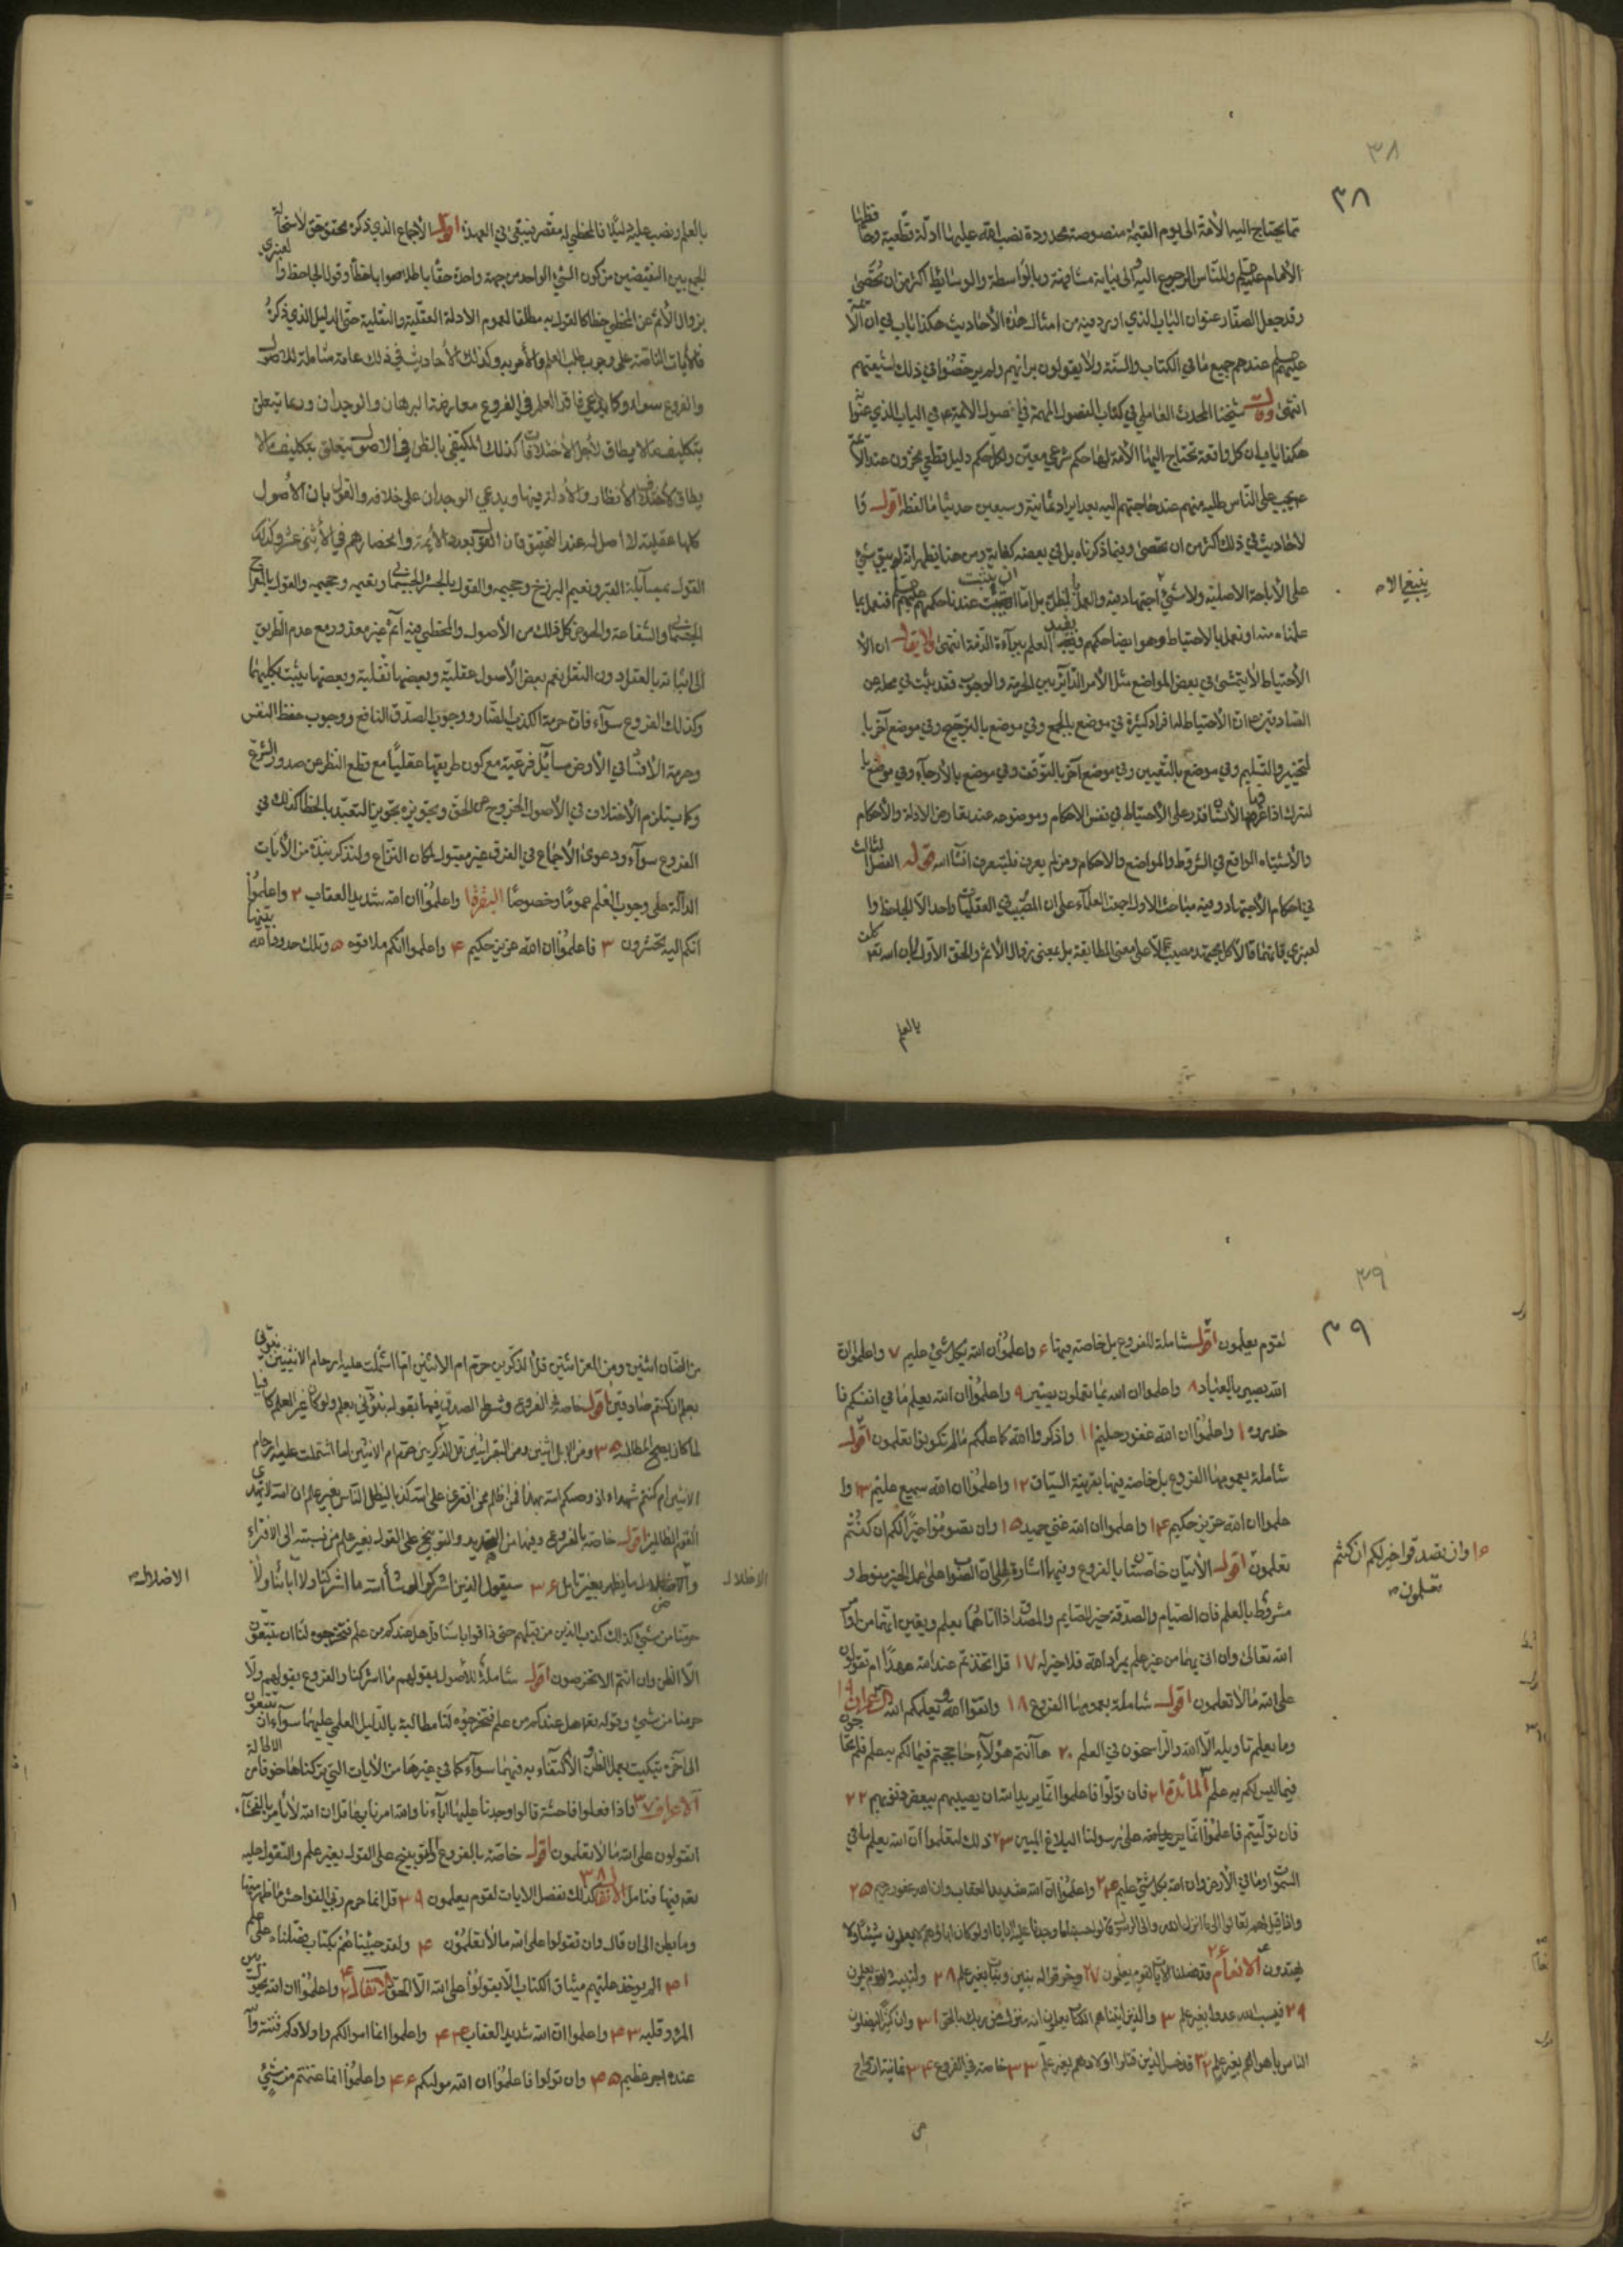 ٣٨
٣٨
مما يحتاج اليه الأمة الى يوم القيمة منصوصة محدودة نصب الله عليها ادلة قطعية وحفظها
الأمام عليهم وللناس الرجوع اليه الى نيابة مشافهة وبالواسطة والوسائط اكثر من ان تحصى
وقد جعل الصفار عنوان الباب الذي اورد فيه من امثال هذه الأحاديث هكذا باب في ان الائمة
عليهم عندهم جميع ما في الكتاب والسنة ولا يقولون برائهم ولم يرخصوا في ذلك لشيعتهم
انتهى وقال شيخنا المحدث العاملي في كتاب الفصول المهمة في اصول الائمة في الباب الذي عنوا
هكذا باب ان كل واقعة تحتاج اليها الأمة لها حكم شرعي معين ولكل حكم دليل قطعي مخزون عند الائمة
ع يجب على الناس طلبه منهم عند حاجتهم اليه بعد ايراد ثمانية وسبعين حديثا ما لفظه اقول وا
لأحاديث في ذلك اكثر من ان تحصى وفيما ذكرناه بل في بعضه كفاية ومن هنا يظهر انه لم يبق شئ
على الأباحة الاصلية ولا شئ اجتهاد فيه والعمل بالظن بل اما ان يثبت عندنا حكمهم عليهم فنعمل بما
ينبغي الا
علمناه منه او نعمل بالاحتياط وهو ايضا حكمهم ويفيد العلم ببرآءة الذمة انتهى ولا يقال ان الأ
الأحتياط لا يتمشى في بعض المواضع مثل الأمر الدآئر بين الحرمة والوجوب فقد ثبت في محله عن
الصادقين ع ان الأحتياط له افراد كثيرة في موضع بالجمع وفي موضع بالترجيح وفي موضع آخر با
لتخيير والتسليم وفي موضع بالتعيين وفي موضع آخر بالتوقف وفي موضع بالأرجآء وفي موضع با
لترك اذا عرفها الأنسان قدر على الأحتياط في نفس الاحكام وموضوعه عند تعارض الادلة والأحكام
والأشتباه الواقع في الشروط والمواضع والاحكام ومن لم يعرف فليتعرف انشآء الله قوله الفصل الثالث
في احكام الأجتهاد وفيه مباحث الاول اجمع العلمآء على ان المصيب في العقليات واحد الا الجاحظ وا
لعنبري فانهما قالا كل مجتهد مصيب لا على معنى المطابقة بل بمعنى زوال الأثم والحق الأول لان الله تع كلف
بالعلم
بالعلم ونصب عليه دليلا فالمخطي له مقصر فيبقى في العهدة اقول الأجماع الذي ذكره محقق حق لأستحالة
الجمع بين النقيضين من كون الشئ الواحد من جهة واحدة حقا باطلا صوابا خطأ وقول الجاحظ والعنبري
بزوال الأثم عن المخطي خطأ كالقول به مطلقا لعموم الادلة العقلية والنقلية حتى الدليل الذي ذكره
فالايات الناصة على وجوب طلب العلم والأمر به وكذلك الأحاديث في ذلك عامة شاملة للاصول
والفروع سواء وكما يدعي فاقد العلم في الفروع معارضة البرهان والوجدان وربما تبعلق
بتكليف ما لا يطاق لأجل الأختلافات كذلك المكتفي بالظن في الاصول يتعلق بتكليف ما لا
يطاق لأختلاف الأنظار والأدلة فيها ويدعي الوجدان على خلافه والقول بان الأصول
كلها عقلية لا اصل له عند التحقيق فان القول بعدد الأئمة وانحصارهم في الأثني عشر وكذلك
القول بمسآيلة القبر ونعيم البرزخ وجحيمه والقول بالحشر الجسماني ونعيمه وجحيمه والقول بالمعراج
الجسماني والشفاعة والحوض كل ذلك من الأصول والمخطي فيه آثم غير معذور مع عدم الطريق
الى اثباته بالعقل دون النقل نعم بعض الأصول عقلية وبعضها نقلية وبعضها يثبت بكليهما
وكذلك الفروع سوآء فان حرمة الكذب الضار ووجوب الصدق النافع ووجوب حفظ النفس
وحرمة الأفساد في الأرض مسآيل فرعية مع كون طريقها عقليا مع قطع النظر عن صدور الشرع
وكما يستلزم الأختلاف في الأصول الخروج عن الحق وتجويزه تجويز التعبد بالخطا كذلك في
الفروع سوآء ودعوى الأجماع في الفرق غير مقبول لمكان النزاع ولنذكر نبذة من الأيات
الدآلة على وجوب العلم عموما وخصوصا البقرة ١ واعلموا ان الله شديد العقاب ٢ واعلموا
انكم اليه تحشرون ٣ فاعلموا ان الله عزيز حكيم ٤ واعلموا انكم ملاقوه ٥ وتلك حدود الله يبينها
٣٩
٣٩
لقوم يعلمون اقول شاملة للفروع بل خاصة فيها ٦ واعلموا ان الله بكل شئ عليم ٧ واعلموا ان
الله بصير بالعباد ٨ واعلموا ان الله بما تعملون بصير ٩ واعلموا ان الله يعلم ما في انفسكم فا
حذروه ١٠ واعلموا ان الله غفور حليم ١١ واذكروا الله كما علمكم ما لم تكونوا تعلمون اقول
شاملة بعمومها الفروع بل خاصة فيها بقرينة السياق ١٢ واعلموا ان الله سميع عليم ١٣ وا
علموا ان الله عزيز حكيم ١٤ واعلموا ان الله غني حميد ١٥ وان تصوموا خير لكم ان كنتم
١٦ وان تصدقوا خير لكم ان كنتم
تعلمون
تعلمون اقول الأيتان خاصتان بالفروع وفيهما اشارة الى ان الثواب على عمل الخير منوط و
مشروط بالعلم فان الصيام والصدقة خير للصايم والمصدق اذا اتاهما بعلم ويقين انهما من اوامر
الله تعالى وان اتى بهما من غير علم بمراد الله فلا خير له ١٧ قل اتخذتم عند الله عهدا ام تقولون
على الله ما لا تعلمون اقول شاملة بعمومها الفروع ١٨ واتقوا الله ويعلمكم الله آل عمران ١٩
وما يعلم تاويله الا الله والراسخون في العلم ٢٠ هآ انتم هؤلآء حاججتم فيما لكم به علم فلم تحاجون
فيما ليس لكم به علم المائدة ٢١ فان تولوا فاعلموا انما يريد الله ان يصيبهم ببعض ذنوبهم ٢٢
فان توليتم فاعلموا انما على رسولنا البلاغ المبين ٢٣ ذلك لتعلموا ان الله يعلم ما في
السموات وما في الأرض وان الله بكل شئ عليم ٢٤ واعلموا ان الله شديد العقاب وان الله غفور رحيم ٢٥
واذا قيل لهم تعالوا الى ما انزل الله والى الرسول قالوا حسبنا ما وجدنا عليه آباءنا اولو كان اباؤهم لا يعلمون شيئا ولا
يهتدون الانعام ٢٦ قد فصلنا الايات لقوم يعلمون ٢٧ وخرقوا له بنين وبنات بغير علم ٢٨ ولنبينه لقوم يعلمون
٢٩ فيسبوا الله عدوا بغير علم ٣٠ والذين اتيناهم الكتاب يعلمون انه منزل من ربك بالحق ٣١ وان كثيرا ليضلون
الناس باهوائهم بغير علم ٣٢ قد خسر الذين قتلوا اولادهم بغير علم ٣٣ خاصة في الفروع ٣٤ ثمانية ازواج
من
من الضأن اثنين ومن المعز اثنين قل آلذكرين حرم ام الانثيين اما اشتملت عليه ارحام الانثيين نبؤني
بعلم ان كنتم صادقين اقول خاصة في الفروع وشرط الصدق فيها بقوله نبؤني بعلم ولو كان غير العلم كافيا
لما كان يصح المطالبة ٣٥ ومن الابل اثنين ومن البقر اثنين قل آلذكرين حرم ام الانثيين اما اشتملت عليه ارحام
الانثيين ام كنتم شهداء اذ وصيكم الله بهذا فمن اظلم ممن افترى على الله كذبا ليضل الناس بغير علم ان الله لا يهدي
القوم الظالمين اقول خاصة بالفروع وفيها من التهديد والتوبيخ على القول بغير علم من نسبته الى الافتراء
الاضلال
والاضلال ما يظهر بغير تامل ٣٦ سيقول الذين اشركوا لو شآء الله ما اشركنا ولا آباؤنا ولا
الاضلال
حرمنا من شئ كذلك كذب الذين من قبلهم حتى ذاقوا باسنا قل هل عندكم من علم فتخرجوه لنا ان تتبعون
الا الظن وان انتم الا تخرصون اقول شاملة للأصول بقولهم ما اشركنا والفروع بقولهم ولا
حرمنا من شئ وقوله تع هل عندكم من علم فتخرجوه لنا مطالبة بالدليل العلمي عليهما سوآء ان تتبعون
الى آخره تبكيت بعمل الظن والأكتفاء به فيهما سوآء كما في غيرها من الأيات التي تركناها خوفا من الاطالة
الاعراف ٣٧ واذا فعلوا فاحشة قالوا وجدنا عليها ابآءنا والله امرنا بها قل ان الله لا يأمر بالفحشآء
اتقولون على الله ما لا تعلمون اقول خاصة بالفروع والتوبيخ على القول بغير علم والتقول عليه
تع فيها فتامل ٣٨ كذلك نفصل الايات لقوم يعلمون ٣٩ قل انما حرم ربي الفواحش ما ظهر منها
وما بطن الى ان قال وان تقولوا على الله ما لا تعلمون ٤٠ ولقد جئناهم بكتاب فصلناه على علم
٤١ الم يوخذ عليهم ميثاق الكتاب الا يقولوا على الله الا الحق الانفال ٤٢ واعلموا ان الله يحول بين
المرء وقلبه ٤٣ واعلموا ان الله شديد العقاب ٤٤ واعلموا انما اموالكم واولادكم فتنة وان
عنده اجر عظيم ٤٥ وان تولوا فاعلموا ان الله موليكم ٤٦ واعلموا انما غنمتم من شئ